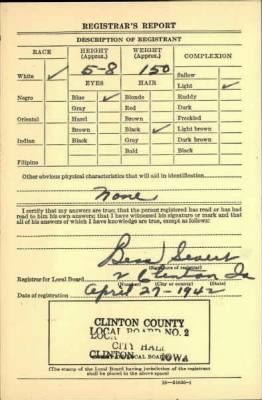 REGISTRAR'S REPORT
DESCRIPTION OF REGISTRANT
RACE HEIGHT (Approx.) WEIGHT (Approx.) COMPLEXION
White ✓ 5-8 150 Sallow
EYES HAIR Light ✓
Negro Blue ✓ Blonde Ruddy
Gray Red Dark
Oriental Hazel Brown Freckled
Brown Black ✓ Light brown
Indian Black Gray Dark brown
Bald Black
Filipino
Other obvious physical characteristics that will aid in identification
None
I certify that my answers are true; that the person registered has read or has had
read to him his own answers; that I have witnessed his signature or mark and that
all of his answers of which I have knowledge are true, except as follows:
Bess
(Signature of registrar)
Registrar for Local Board 2 Clinton Ia
(Number) (City or county) (State)
Date of registration April 27-1942
CLINTON COUNTY
LOCAL BOARD NO. 2
CITY HALL
CLINTON IOWA
(The stamp of the Local Board having jurisdiction of the registrant
shall be placed in the above space)